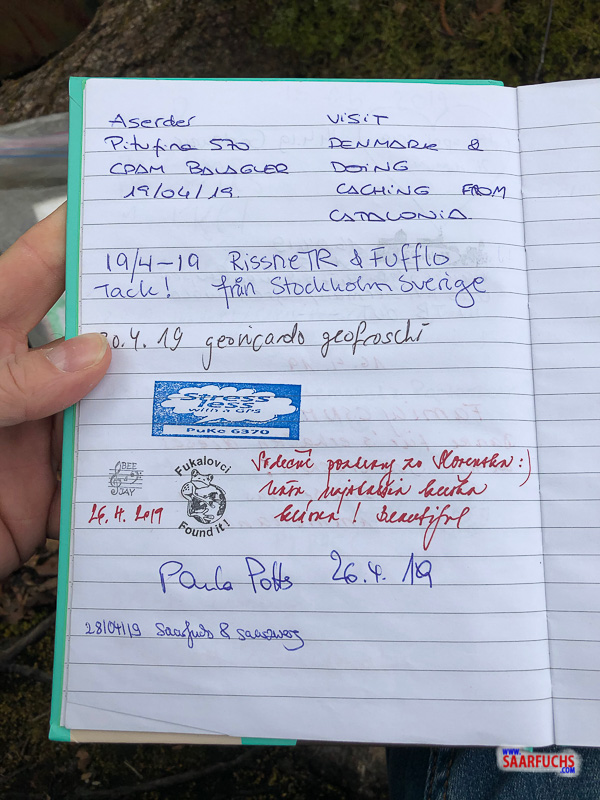 Aserder
Pitufina 570
CPAM BALAGUER
19/04/19
VISIT
DENMARK &
DOING
CACHING FROM
CATALONIA.
19/4-19 RissneTR & Fufflo
Tack! från Stockholm Sverige
30.4.19 georiçardo geofroschi
Stress
less
with a GPS
PuKe 6370
BEE
JAY
Fukalovci
Found it!
26.4.2019
Srdečné pozdravy zo Slovenska :)
! Beautiful
Paula Potts 26.4.19
28/04/19 Saarfuchs & Saarzwerg
WWW.
SAARFUCHS
.COM